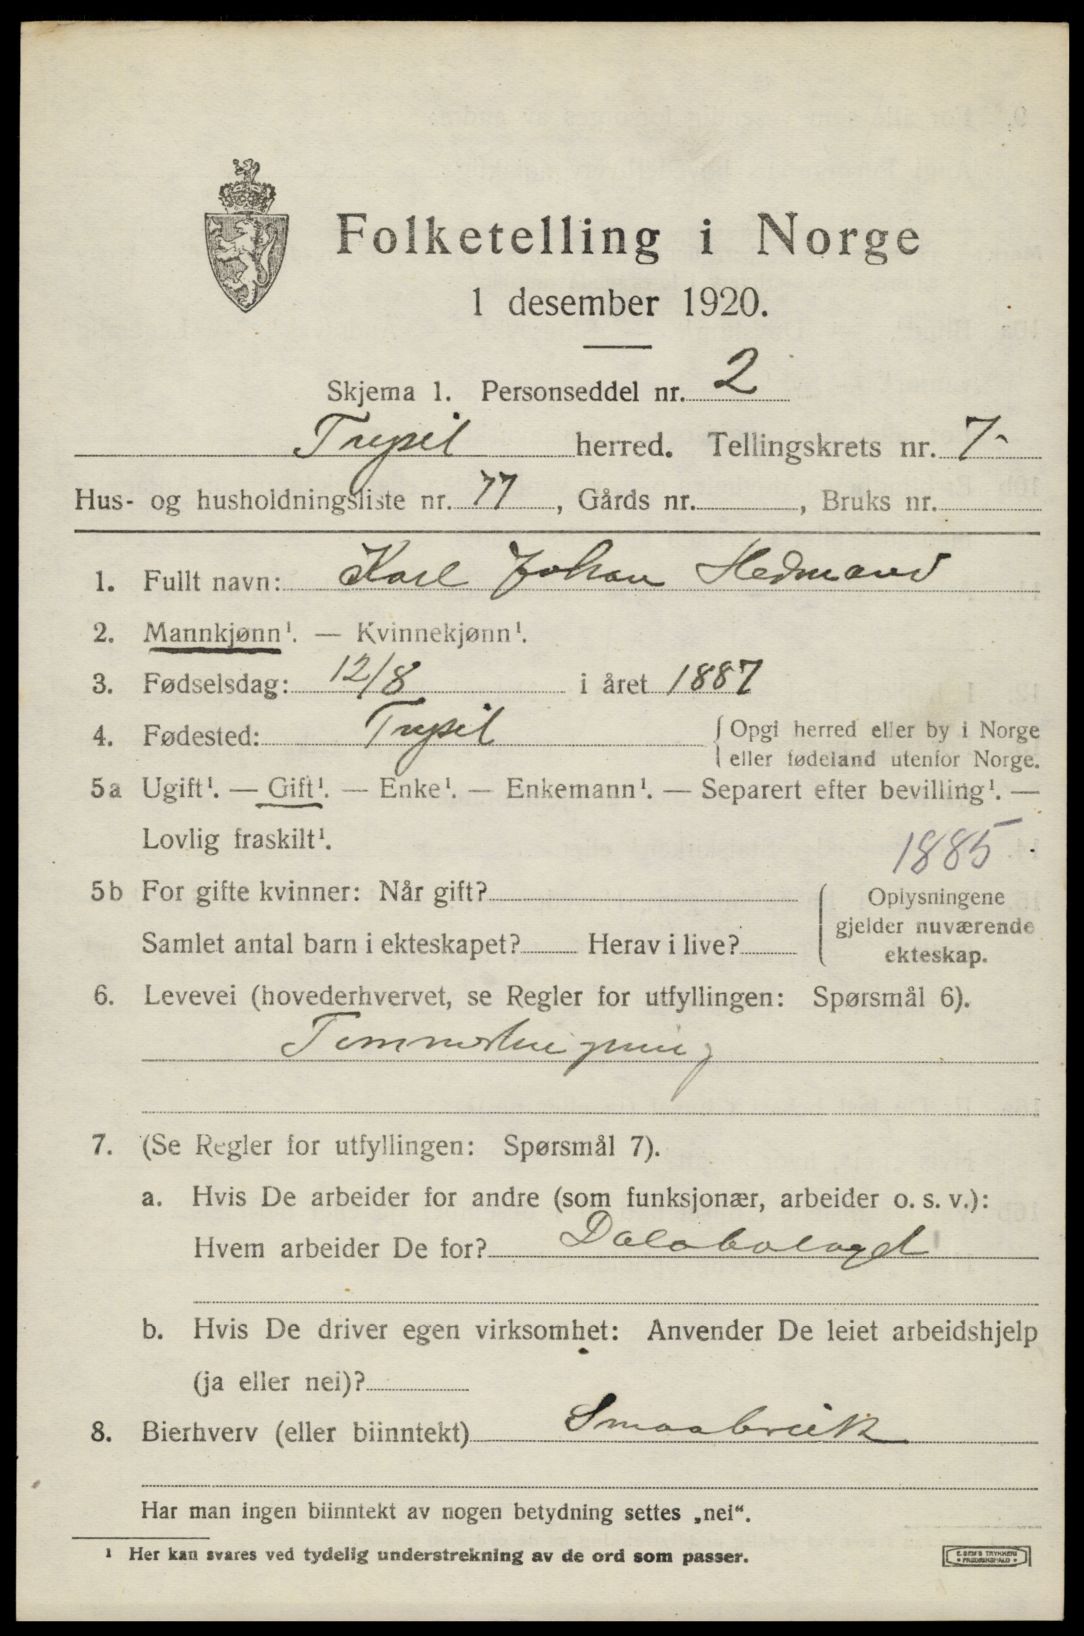 Folketelling i Norge
1 desember 1920.
Skjema 1. Personseddel nr. 2
Trysil herred. Tellingskrets nr. 7
Hus- og husholdningsliste nr. 77, Gårds nr. , Bruks nr.
1. Fullt navn: Karl Johan Hedmand
2. Mannkjønn¹. — Kvinnekjønn¹.
3. Fødselsdag: 12/8 i året 1887
4. Fødested: Trysil { Opgi herred eller by i Norge
eller fødeland utenfor Norge.
5a Ugift¹. — Gift¹. — Enke¹. — Enkemann¹. — Separert efter bevilling¹. —
Lovlig fraskilt¹.
1885
5b For gifte kvinner: Når gift?
Samlet antal barn i ekteskapet? Herav i live?
{ Oplysningene
gjelder nuværende
ekteskap.
6. Levevei (hovederhvervet, se Regler for utfyllingen: Spørsmål 6).
7. (Se Regler for utfyllingen: Spørsmål 7).
a. Hvis De arbeider for andre (som funksjonær, arbeider o. s. v.):
Hvem arbeider De for? Dalabolaget
b. Hvis De driver egen virksomhet: Anvender De leiet arbeidshjelp
(ja eller nei)?
8. Bierhverv (eller biinntekt) Smaabruk
Har man ingen biinntekt av nogen betydning settes „nei“.
¹ Her kan svares ved tydelig understrekning av de ord som passer.
E. SEM'S TRYKKERI
FREDRIKSHALD